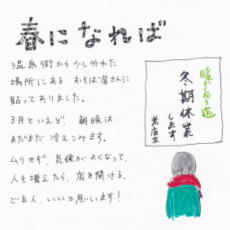 春になれば
温泉街から少し外れた
場所にある おそば屋さんに
貼ってありました。
3月といえど、朝晩は
まだまだ冷えこみます。
ムリせず、気候がよくなって、
人も増えたら、店を開ける。
ご主人、いいと思います！
暖かくなる迄
冬期休業
します
店主